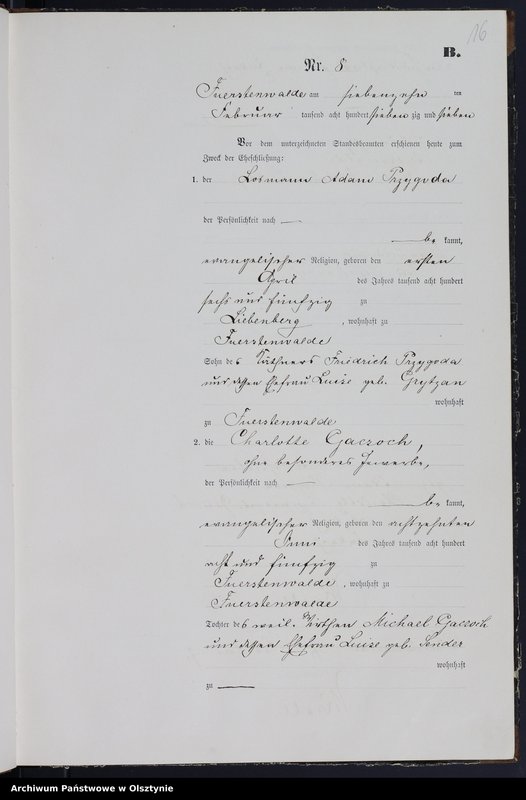 16
B.
Nr. 8
Fuerstenwalde am siebenzehn ten
Februar tausend acht hundert sieben zig und sieben
Vor dem unterzeichneten Standesbeamten erschienen heute zum
Zweck der Eheschließung:
1. der Losmann Adam Przygoda
der Persönlichkeit nach
be kannt,
evangelischer Religion, geboren den ersten
April des Jahres tausend acht hundert
sechs und fünfzig zu
Liebenberg, wohnhaft zu
Fuerstenwalde
Sohn des Käthners Friedrich Przygoda
und dessen Ehefrau Luise geb. Grytzan
wohnhaft
zu Fuerstenwalde
2. die Charlotte Gaczoch,
ohne besonderes Gewerbe,
der Persönlichkeit nach
be kannt,
evangelischer Religion, geboren den achtzehnten
Juni des Jahres tausend acht hundert
acht und fünfzig zu
Fuerstenwalde, wohnhaft zu
Fuerstenwalde
Tochter des weil. Wirthen Michael Gaczoch
und dessen Ehefrau Luise geb. Sender
wohnhaft
zu
Archiwum Państwowe w Olsztynie